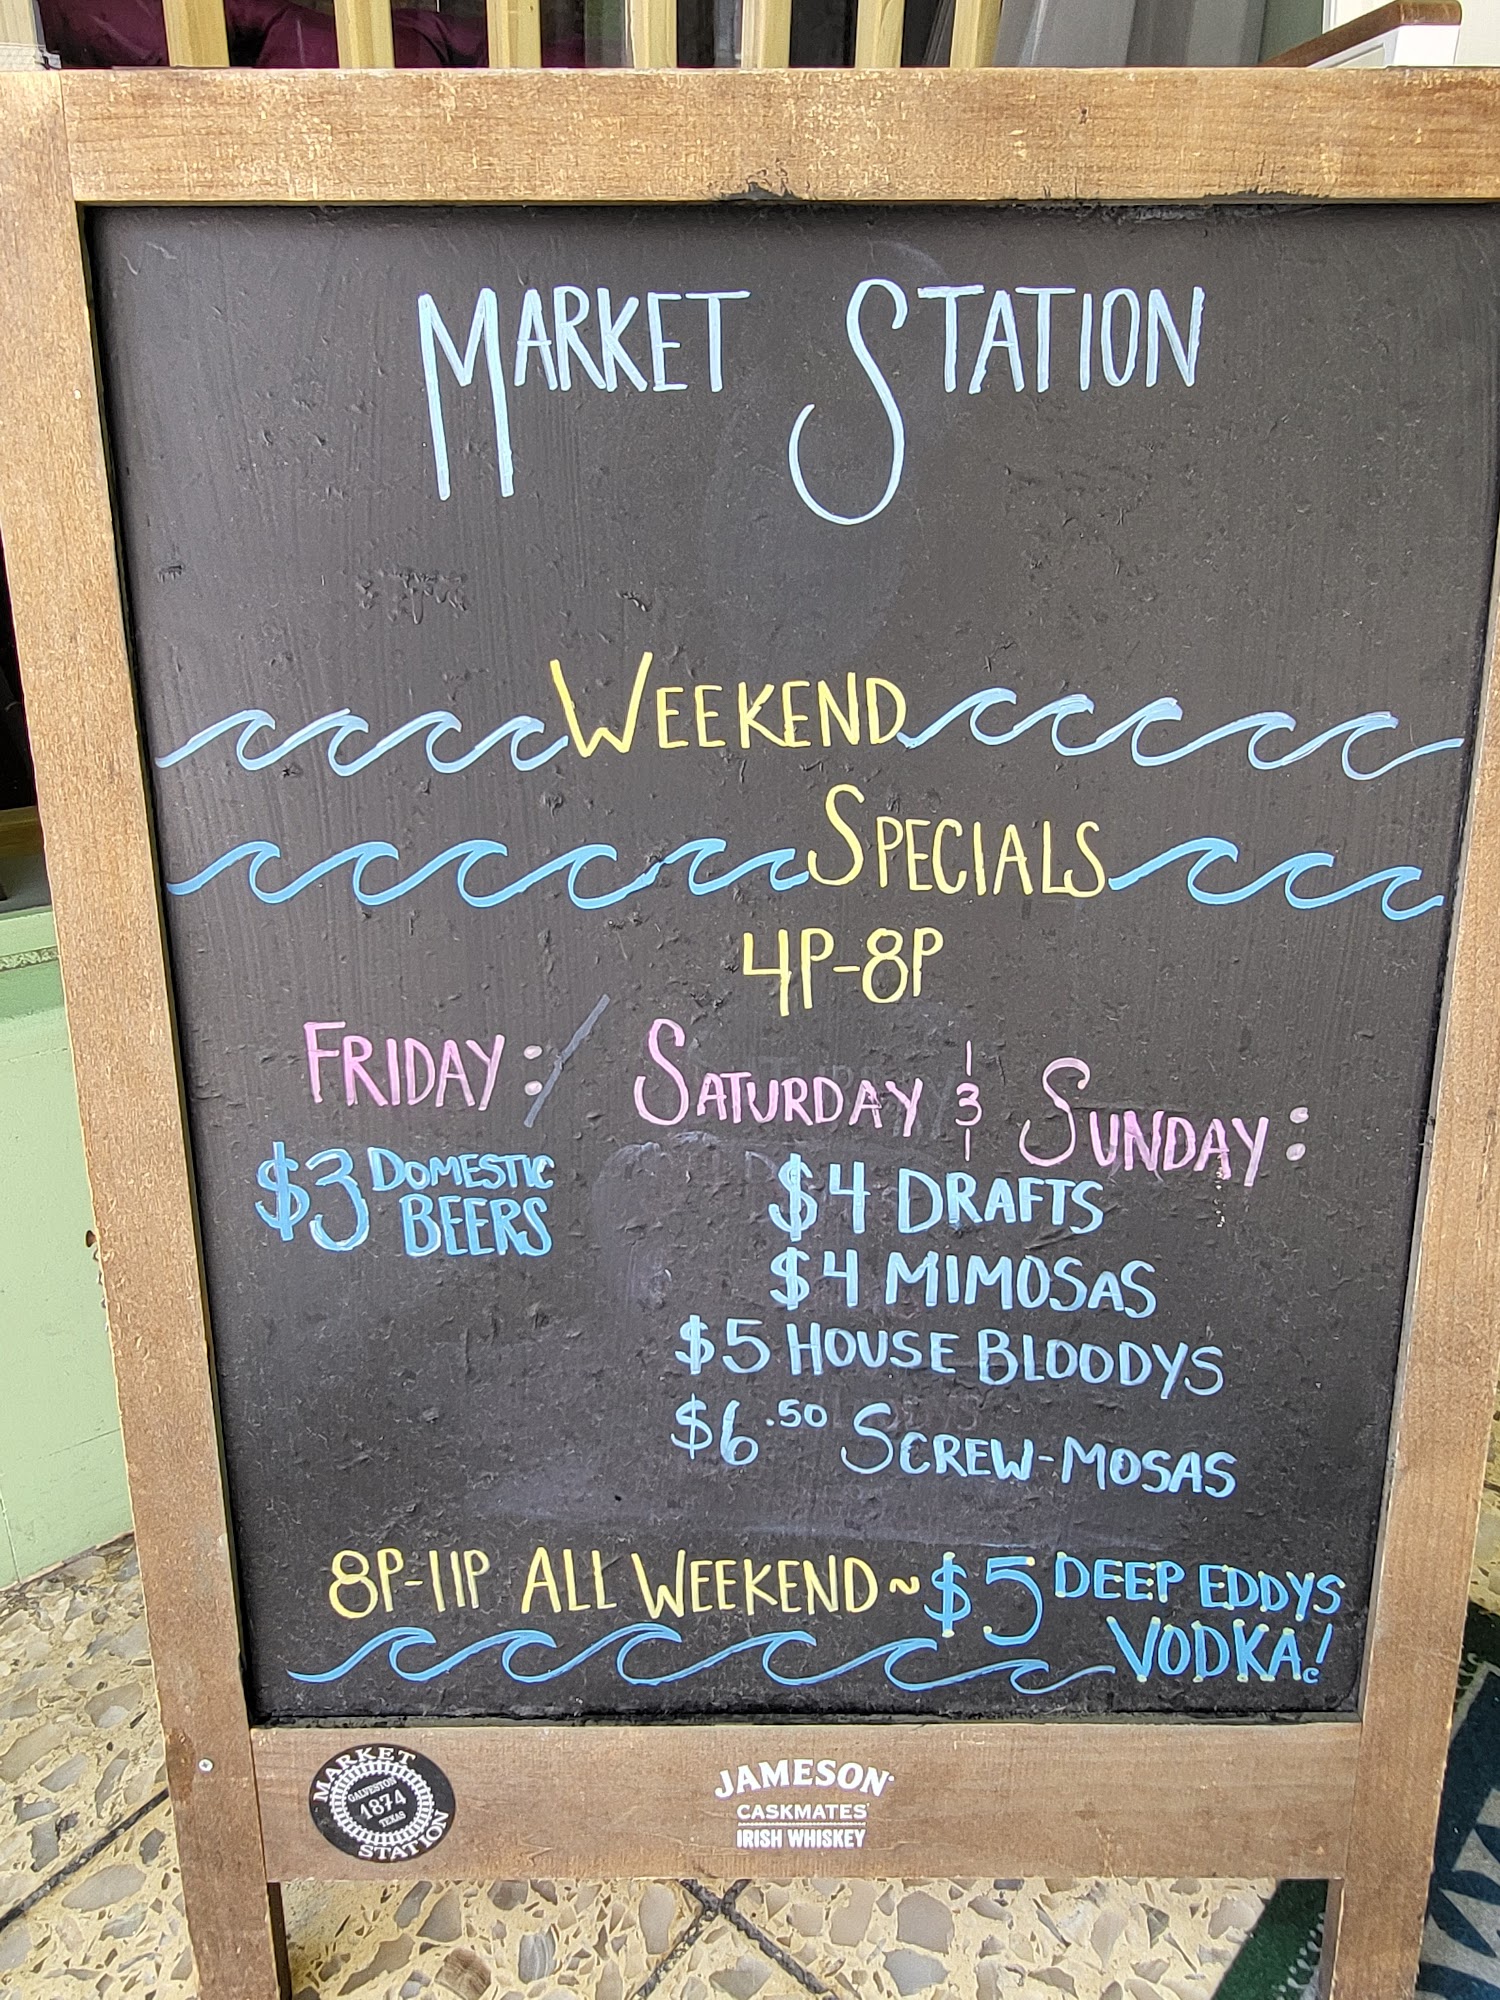 MARKET STATION
WEEKEND
SPECIALS
4P-8P
FRIDAY:/
$3 DOMESTIC
BEERS
SATURDAY & SUNDAY:
$4 DRAFTS
$4 MIMOSAS
$5 HOUSE BLOODYS
$6.50 SCREW-MOSAS
8P-11P ALL WEEKEND ~ $5 DEEP EDDYS
VODKA!
MARKET
GALVESTON
1874
TEXAS
STATION
JAMESON
CASKMATES
IRISH WHISKEY